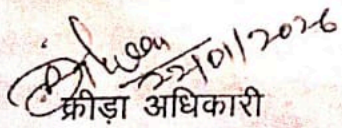 22/01/2026
क्रीड़ा अधिकारी